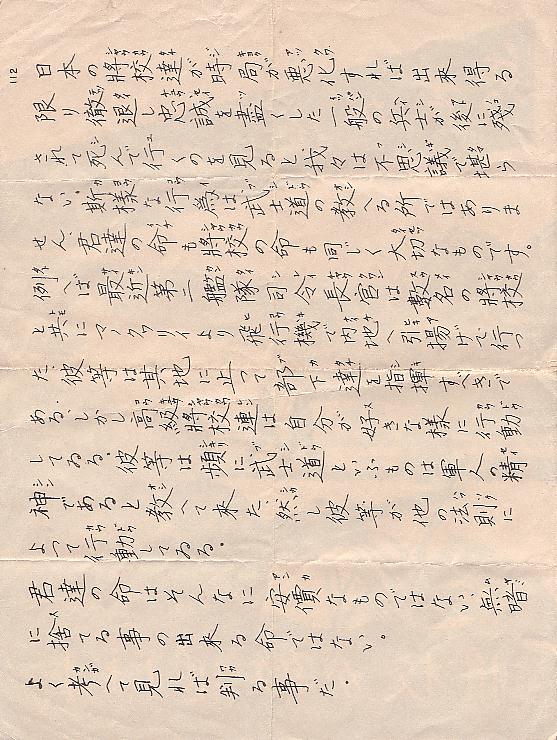 112
日本の將校達が時局が悪化すれば出來得る
限り徹退し忠誠を盡くした一般の兵士が後に殘
されて死んで行くのを見ると、我々は不思議で堪ら
ない、斯様な行為は武士道の教へる所ではありま
せん、君達の命も將校の命も同じく大切なものです。
例へば最近第一艦隊司令長官は數名の將校
と共にマノクワリイより飛行機で内地へ引揚げて行っ
た、彼等は其地に止って部下達を指揮すべきで
ある、しかし高級將校連は自分が好きな様に行動
してゐる、彼等は頻に武士道といふものは軍人の精
神であると教へて來た 然し彼等が他の法則に
よって行動してゐる.
君達の命はそんなに安價なものではない、無暗
に捨てる事の出來る命ではない。
よく考へて見れば判る事だ.